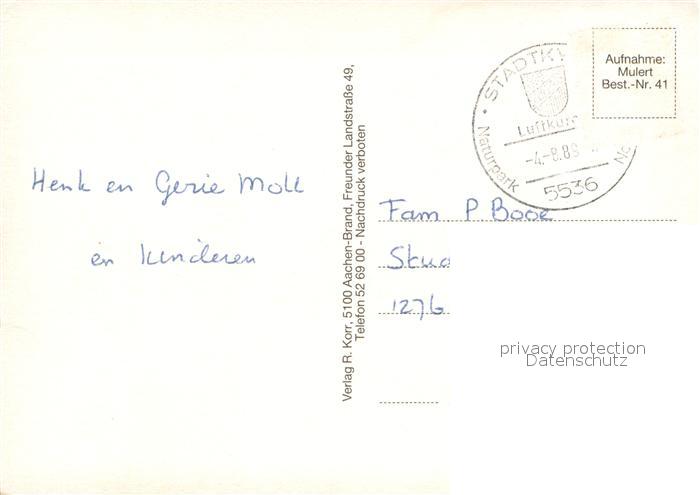 Henk en Gerie Moll
en kinderen
Verlag R. Korr, 5100 Aachen-Brand, Freunder Landstraße 49,
Telefon 52 69 00 - Nachdruck verboten
STADTKY
Luftkur
-4.-8.89
Naturpark
5536
Aufnahme:
Mulert
Best.-Nr. 41
Fam P Booe
1276
privacy protection
Datenschutz